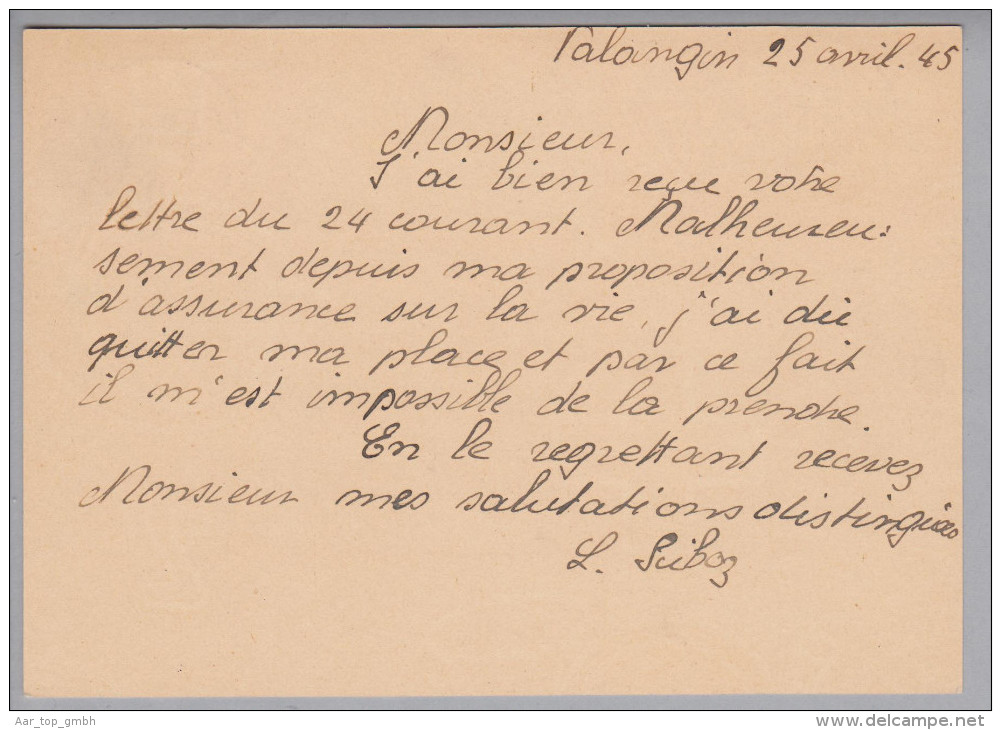 Valangin 25 avril. 45
Monsieur,
J'ai bien reçue votre
lettre du 24 courant. Malheureu:
sement depuis ma proposition
d'assurance sur la vie, j'ai dû
quitter ma place et par ce fait
il m'est impossible de la prendre.
En le regrettant recevez
Monsieur mes salutations distinguées
L.
Aar_top_gmbh
www.delcampe.net